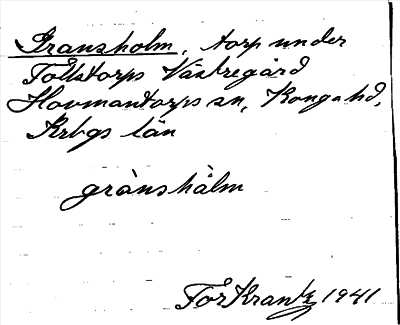 Gransholm, torp under
Tollstorps Västregård
Hovmantorps sn, Konga hd,
Krbgs län
grànshàlm
Tor Krantz 1941